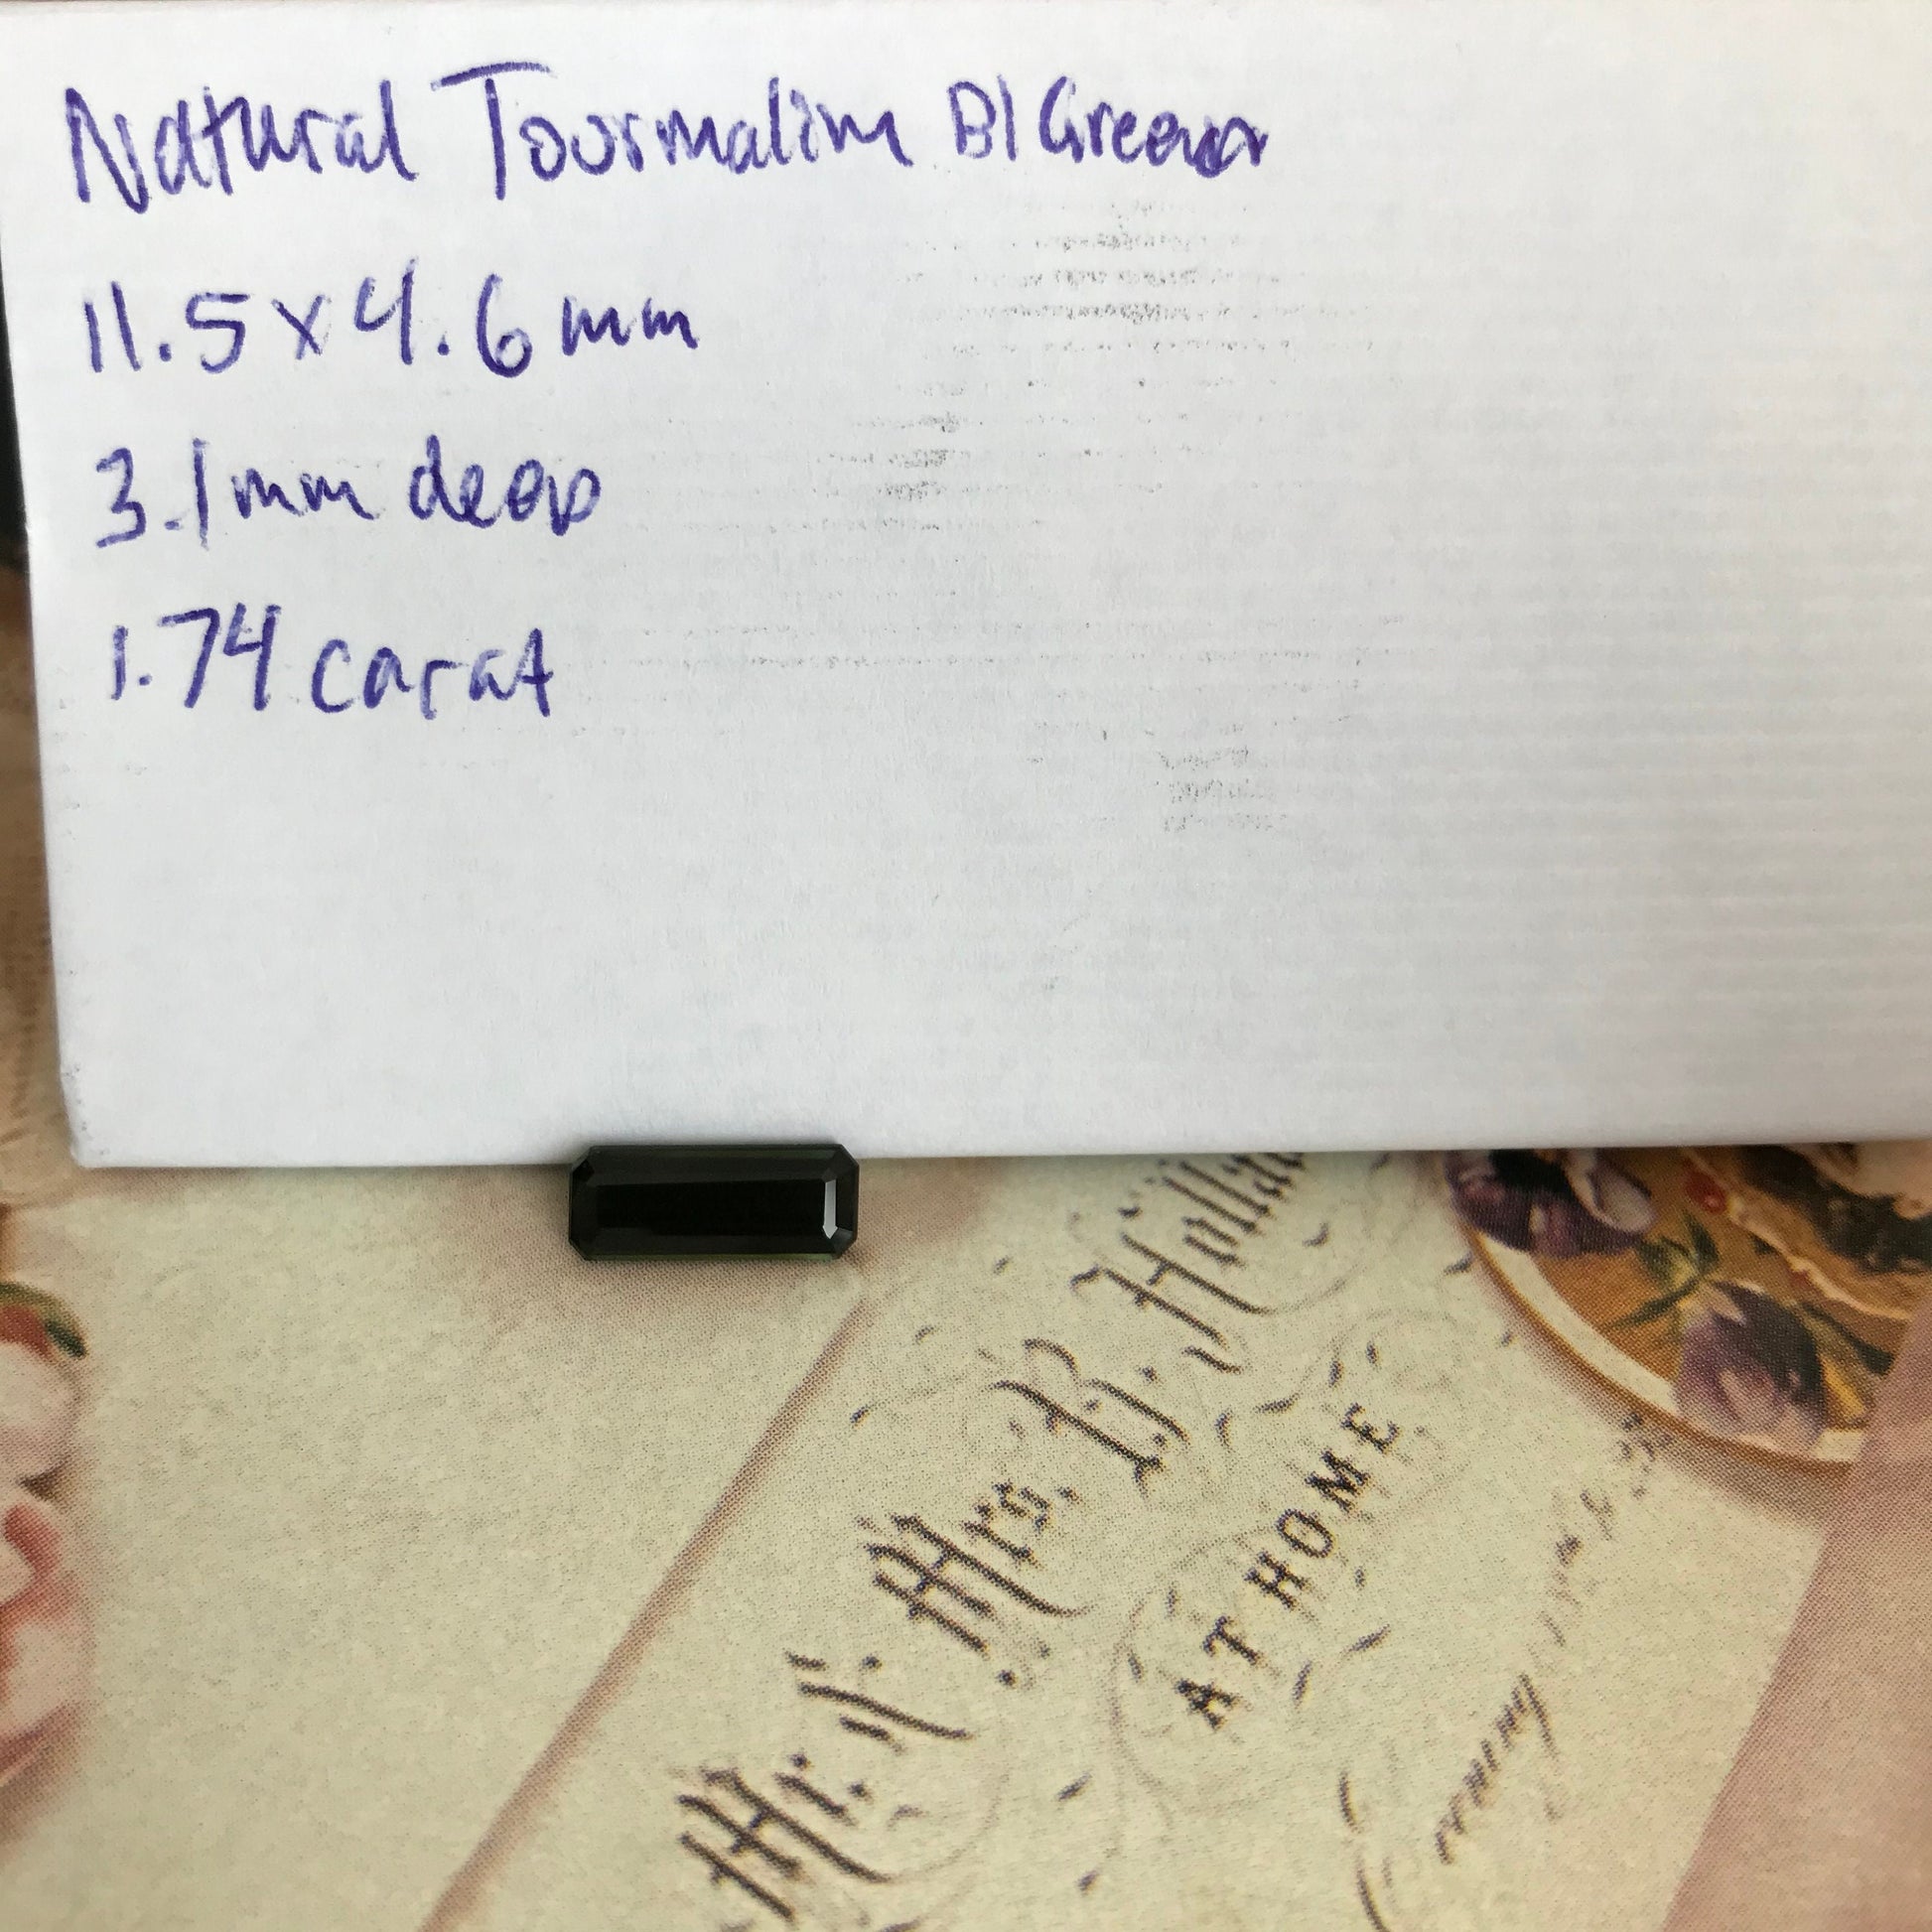 Natural Tourmalin Bl Green
11.5 x 4.6 mm
3.1 mm deep
1.74 carat
Mr. & Mrs. B. Holla
AT HOME